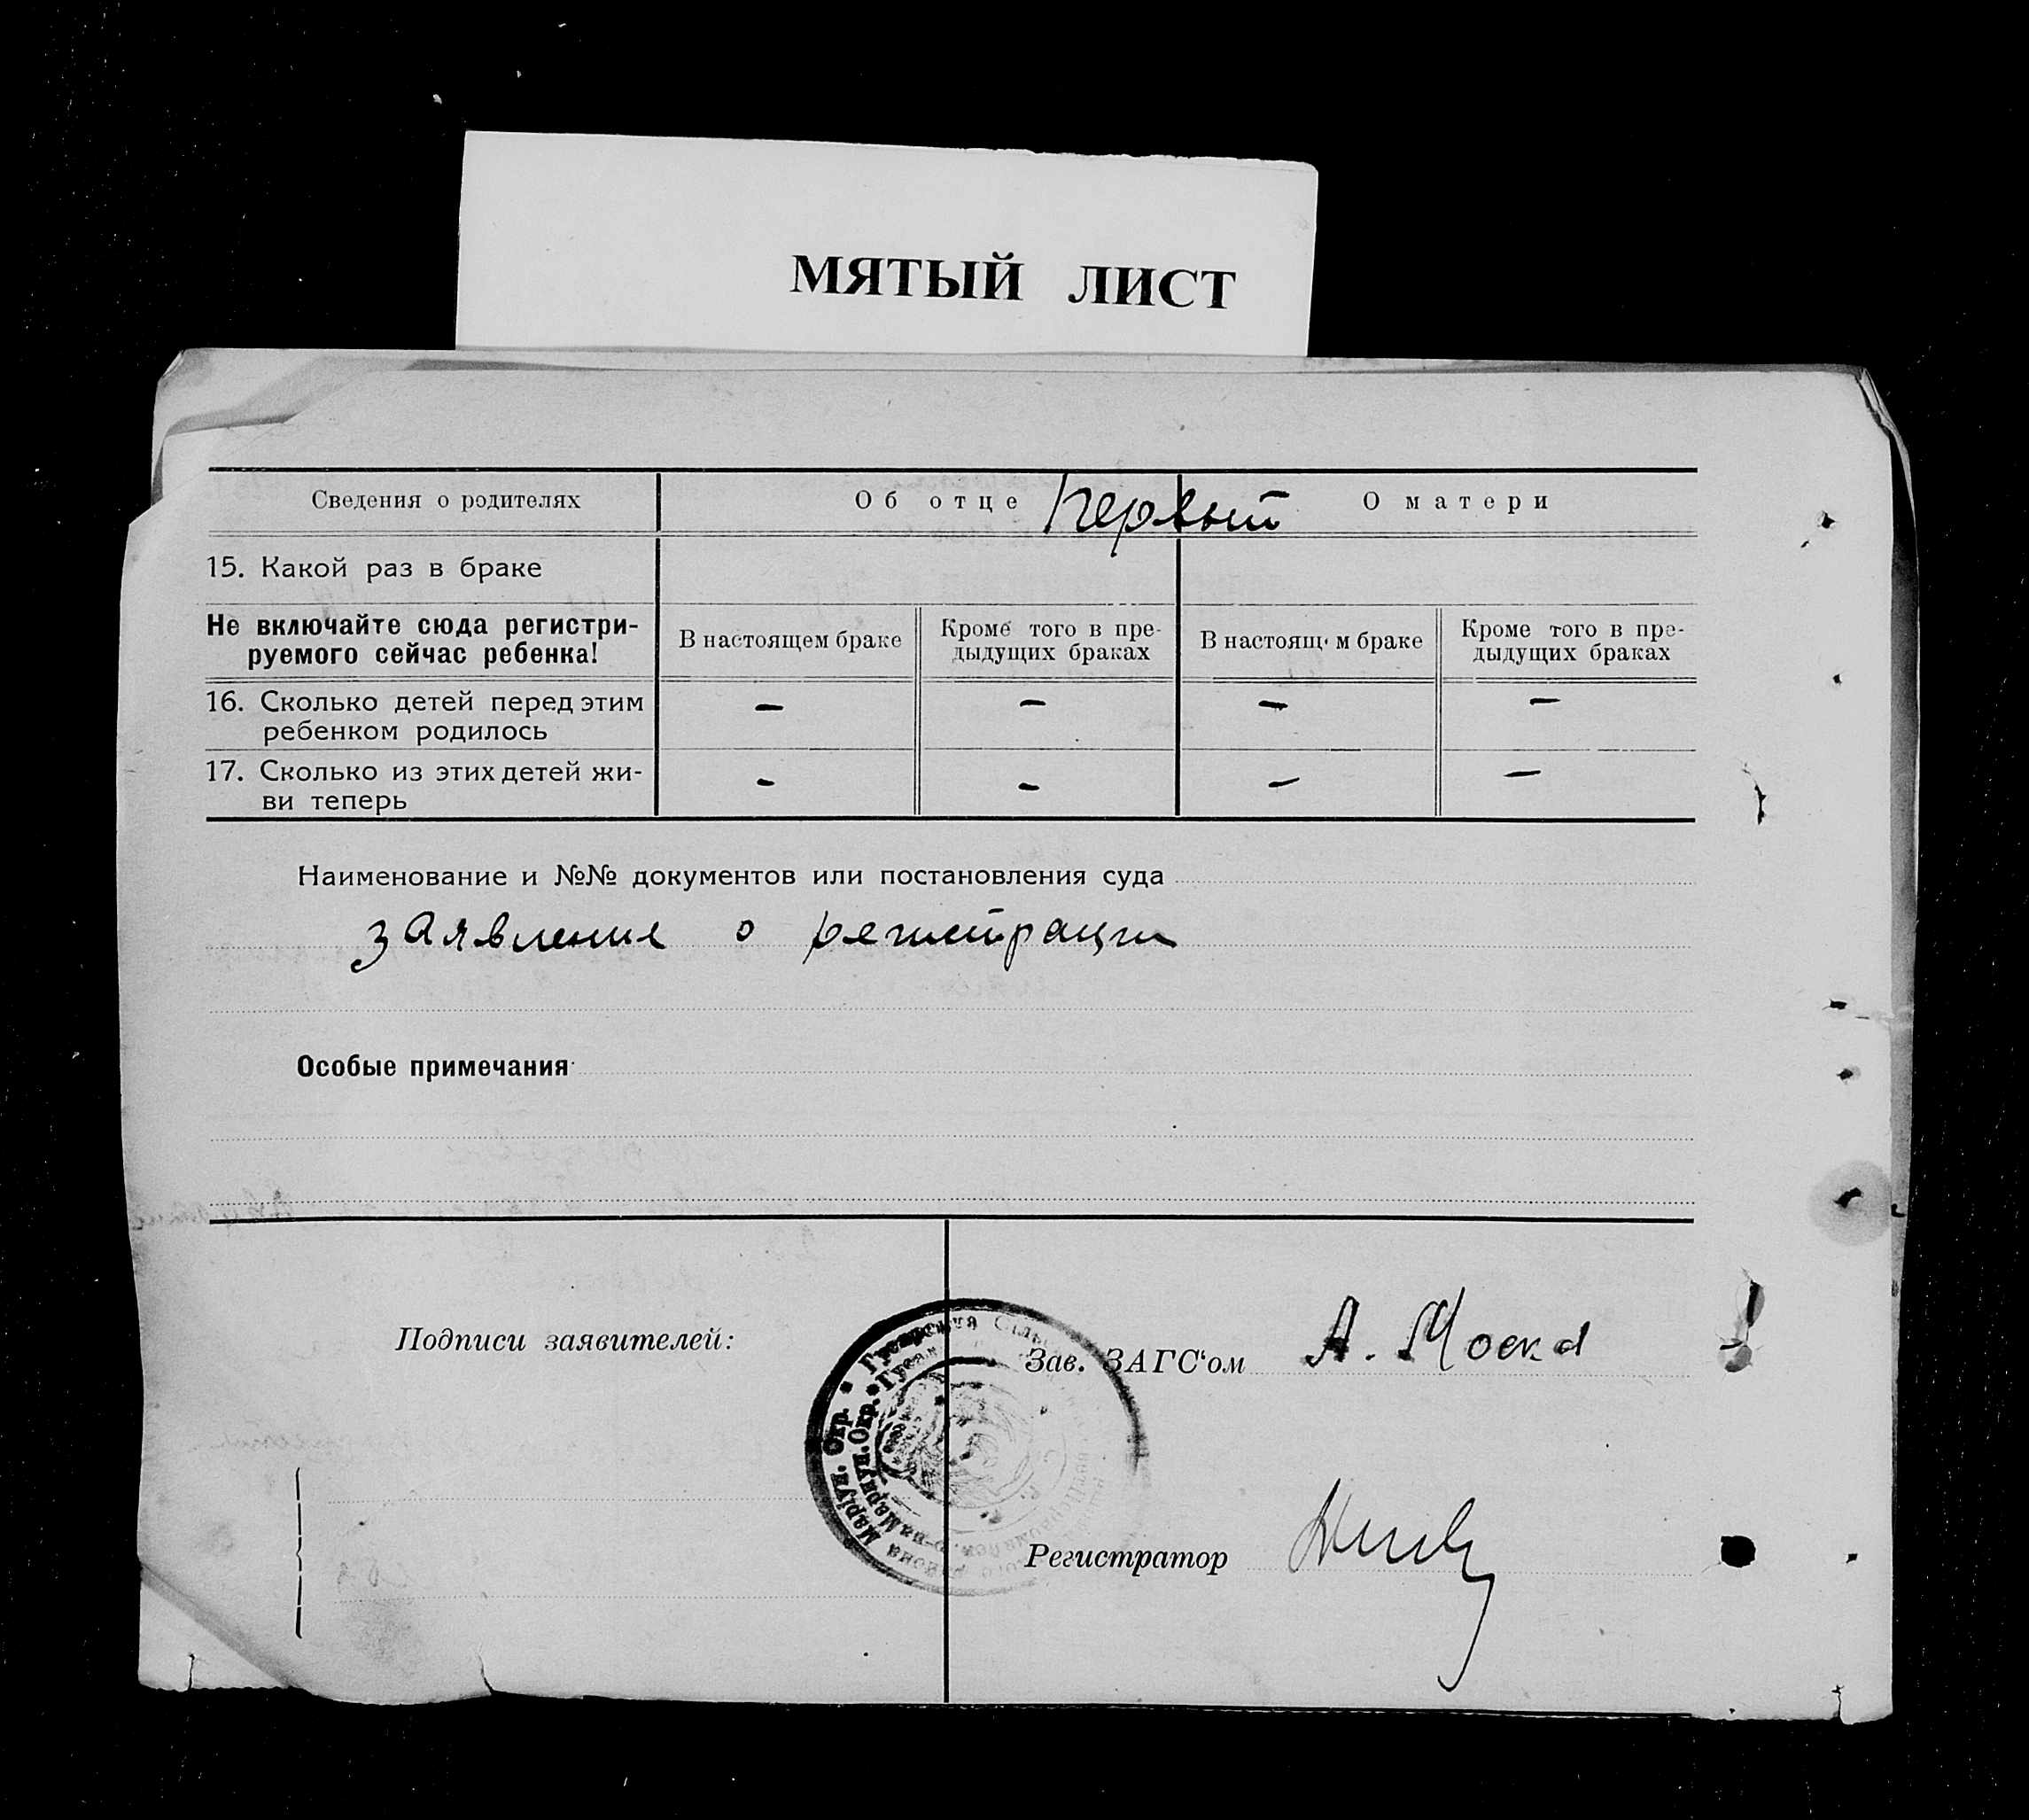 МЯТЫЙ ЛИСТ
Сведения о родителях Об отце Первый О матери
15. Какой раз в браке
Не включайте сюда регистри-
руемого сейчас ребенка!
В настоящем браке
Кроме того в пре-
дыдущих браках
В настоящем браке
Кроме того в пре-
дыдущих браках
16. Сколько детей перед этим
ребенком родилось
— — — —
17. Сколько из этих детей жи-
ви теперь
— — — —
Наименование и №№ документов или постановления суда
заявление о регистрации
Особые примечания
Подписи заявителей:
Зав. ЗАГС‘ом А. Моска
Регистратор
Маріуп. Окр. *
Мариуп. Окр. *